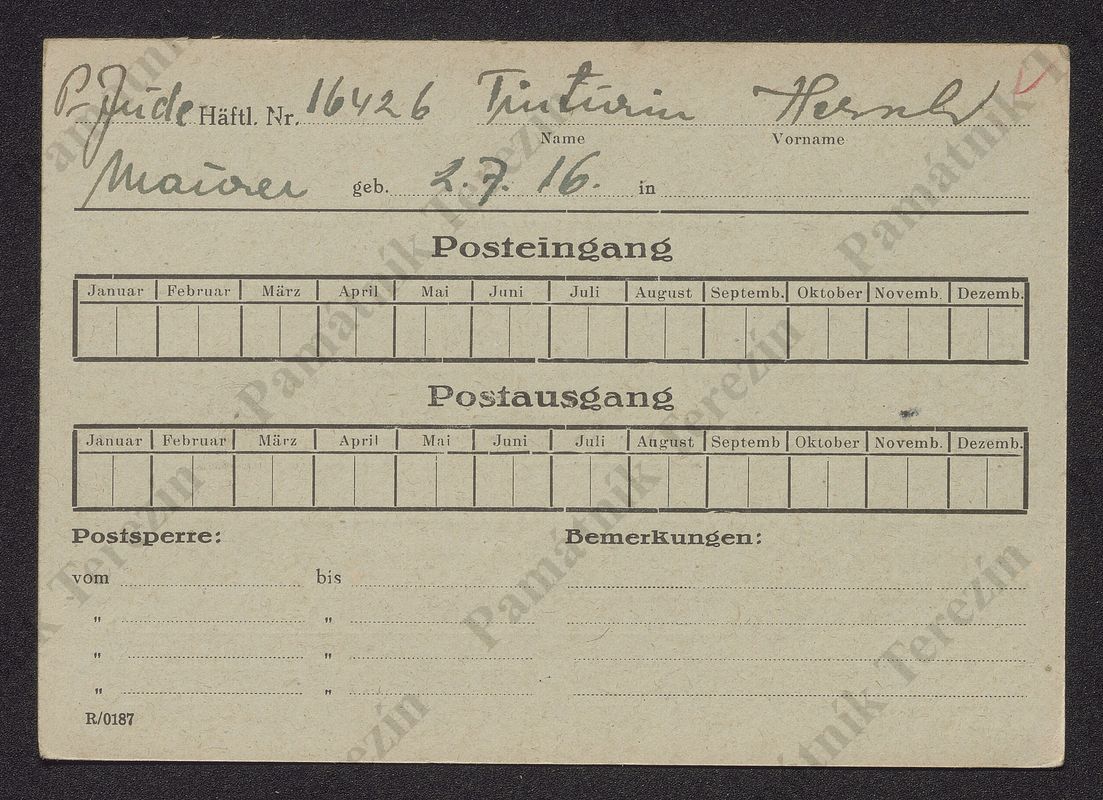 P. Jude Häftl. Nr. 16426 Tinturin Hersch
Name Vorname
Maurer geb. 2.7.16. in
Posteingang
Januar Februar März April Mai Juni Juli August Septemb. Oktober Novemb. Dezemb.
Postausgang
Januar Februar März April Mai Juni Juli August Septemb Oktober Novemb. Dezemb.
Postsperre: Bemerkungen:
vom bis
" "
" "
" "
R/0187
Památník Terezín